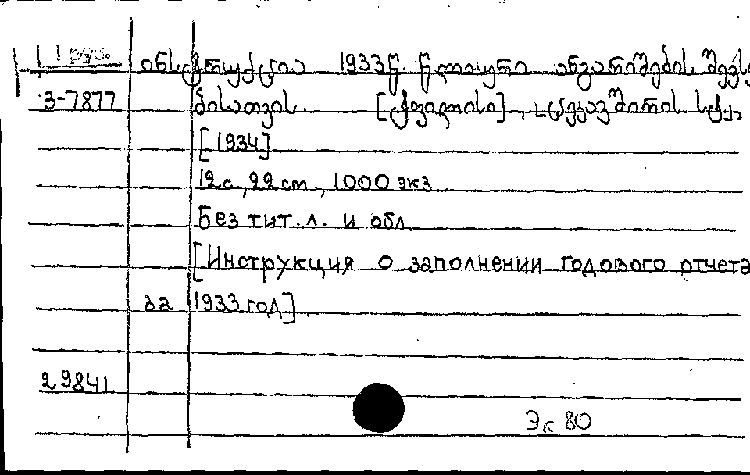 11 груз. ინსტრუქცია 1933 წ. წლიური ანგარიშების შევს
3-7877 ბისათვის. [ტფილისი],
[1934]
12 с, 22 cm, 1000 экз
Без тит. л. и обл
[Инструкция о заполнении годового отчета
за 1933 год]
29841
Эс 80